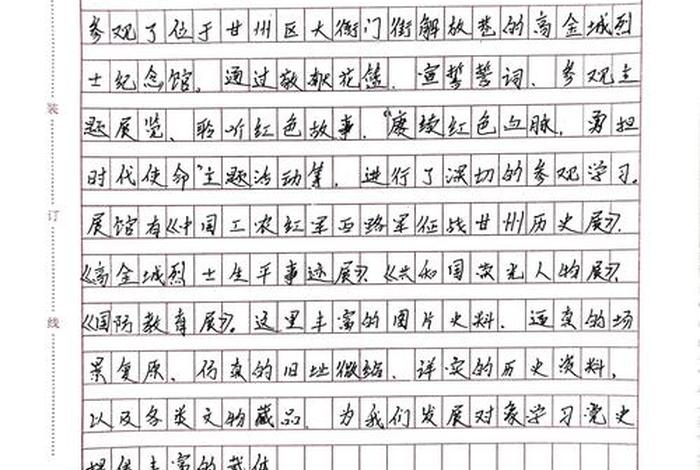 参观了位于甘州区大衙门街解放巷的高金城烈
士纪念馆。通过敬献花篮、宣誓誓词、参观主
题展览、聆听红色故事、“赓续红色血脉，勇担
时代使命”主题活动等，进行了深切的参观学习。
展馆有《中国工农红军西路军征战甘州历史展》、
《高金城烈士生平事迹展》、《共和国荧光人物展》、
《国防教育展》。这里丰富的图片史料、逼真的场
景复原、仿真的旧址微缩、详实的历史资料，
以及各类文物藏品，为我们发展对象学习党史
提供丰富的载体
装
订
线